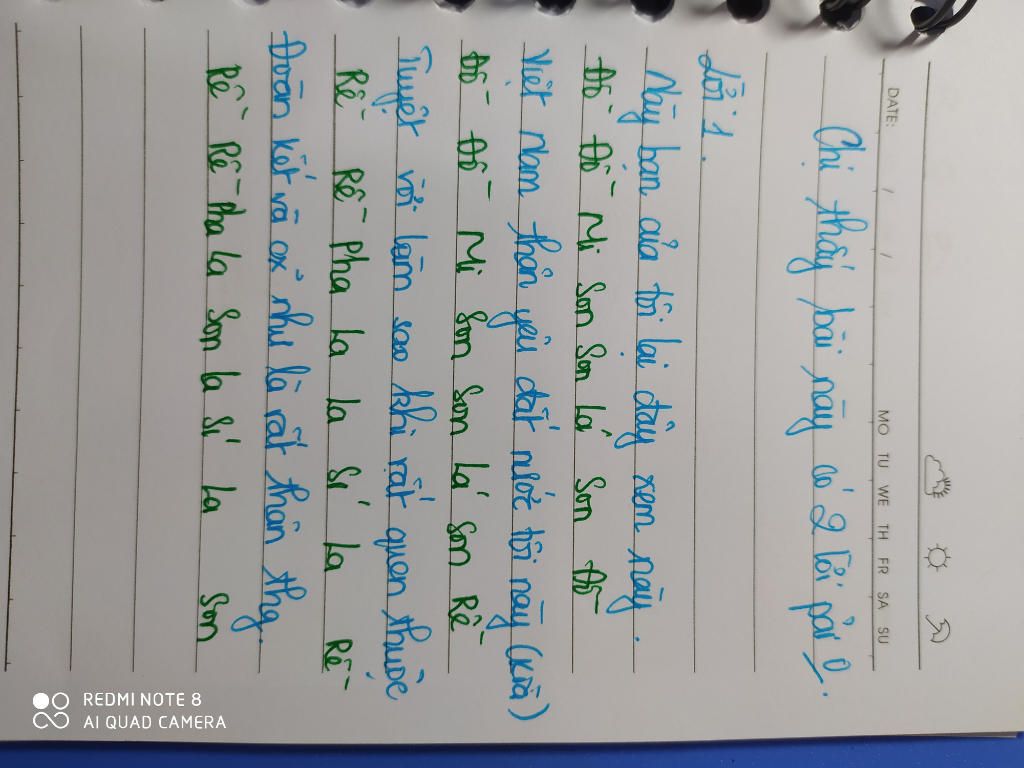 DATE: / /
MO TU WE TH FR SA SU
Chị thấy bài này có 2 lời
Lời 1.
Này bạn của tôi lại đây xem này.
Đố Đố Mi Son Son Lá Son Đố
Việt Nam thân yêu đất nước tôi này (kìa)
Đố Đố Mi Son Son Lá Son Rê
Tuyệt vời làm sao khi rất quen thuộc
Rê Rê Pha La La Sí La Rê
Đoàn kết và ox như là rất thân thg.
Rê Rê Pha La Son La Sí La Son
REDMI NOTE 8
AI QUAD CAMERA